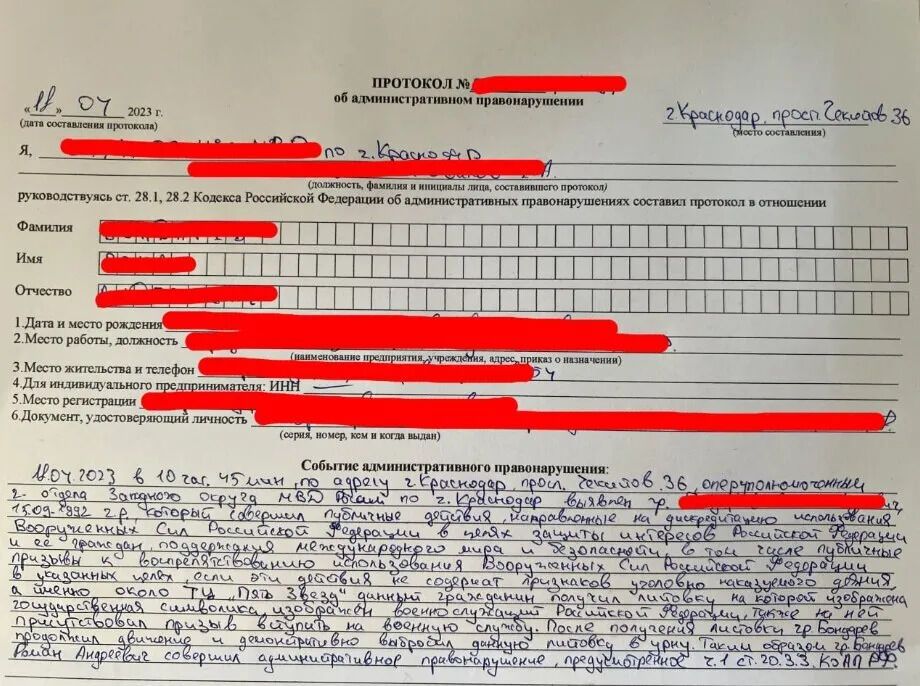 ПРОТОКОЛ №
об административном правонарушении
«11» 04 2023 г.
(дата составления протокола)
г. Краснодар, просп. Чекистов 36
(место составления)
Я, по г. Краснодар
(должность, фамилия и инициалы лица, составившего протокол)
руководствуясь ст. 28.1, 28.2 Кодекса Российской Федерации об административных правонарушениях составил протокол в отношении
Фамилия
Имя
Отчество
1.Дата и место рождения
2.Место работы, должность
(наименование предприятия, учреждения, адрес, приказ о назначении)
3.Место жительства и телефон
4.Для индивидуального предпринимателя: ИНН —
5.Место регистрации
6.Документ, удостоверяющий личность
(серия, номер, кем и когда выдан)
Событие административного правонарушения:
11.04.2023 в 10 час. 45 мин, по адресу г. Краснодар, просп. Чекистов 36, оперуполномоченным
2- отдела Западного округа МВД по г. Краснодар выявлен гр.
15.09.1992 г.р., который совершил публичные действия, направленные на дискредитацию использования
Вооруженных Сил Российской Федерации в целях защиты интересов Российской Федерации
и ее граждан, поддержания международного мира и безопасности, в том числе публичные
призывы к воспрепятствованию использования Вооруженных Сил Российской Федерации
в указанных целях, если эти действия не содержат признаков уголовно наказуемого деяния,
а именно, около ТЦ "Пять Звезд" данный гражданин получил листовку на которой изображена
государственная символика, изображен военнослужащий Российской Федерации, также на ней
присутствовал призыв вступить на военную службу. После получения листовки гр. Бондарев
продолжил движение и демонстративно выбросил данную листовку в урну. Таким образом гр. Бондарев
Роман Андреевич совершил административное правонарушение, предусмотренное ч.1 ст.20.3.3. КоАП РФ.